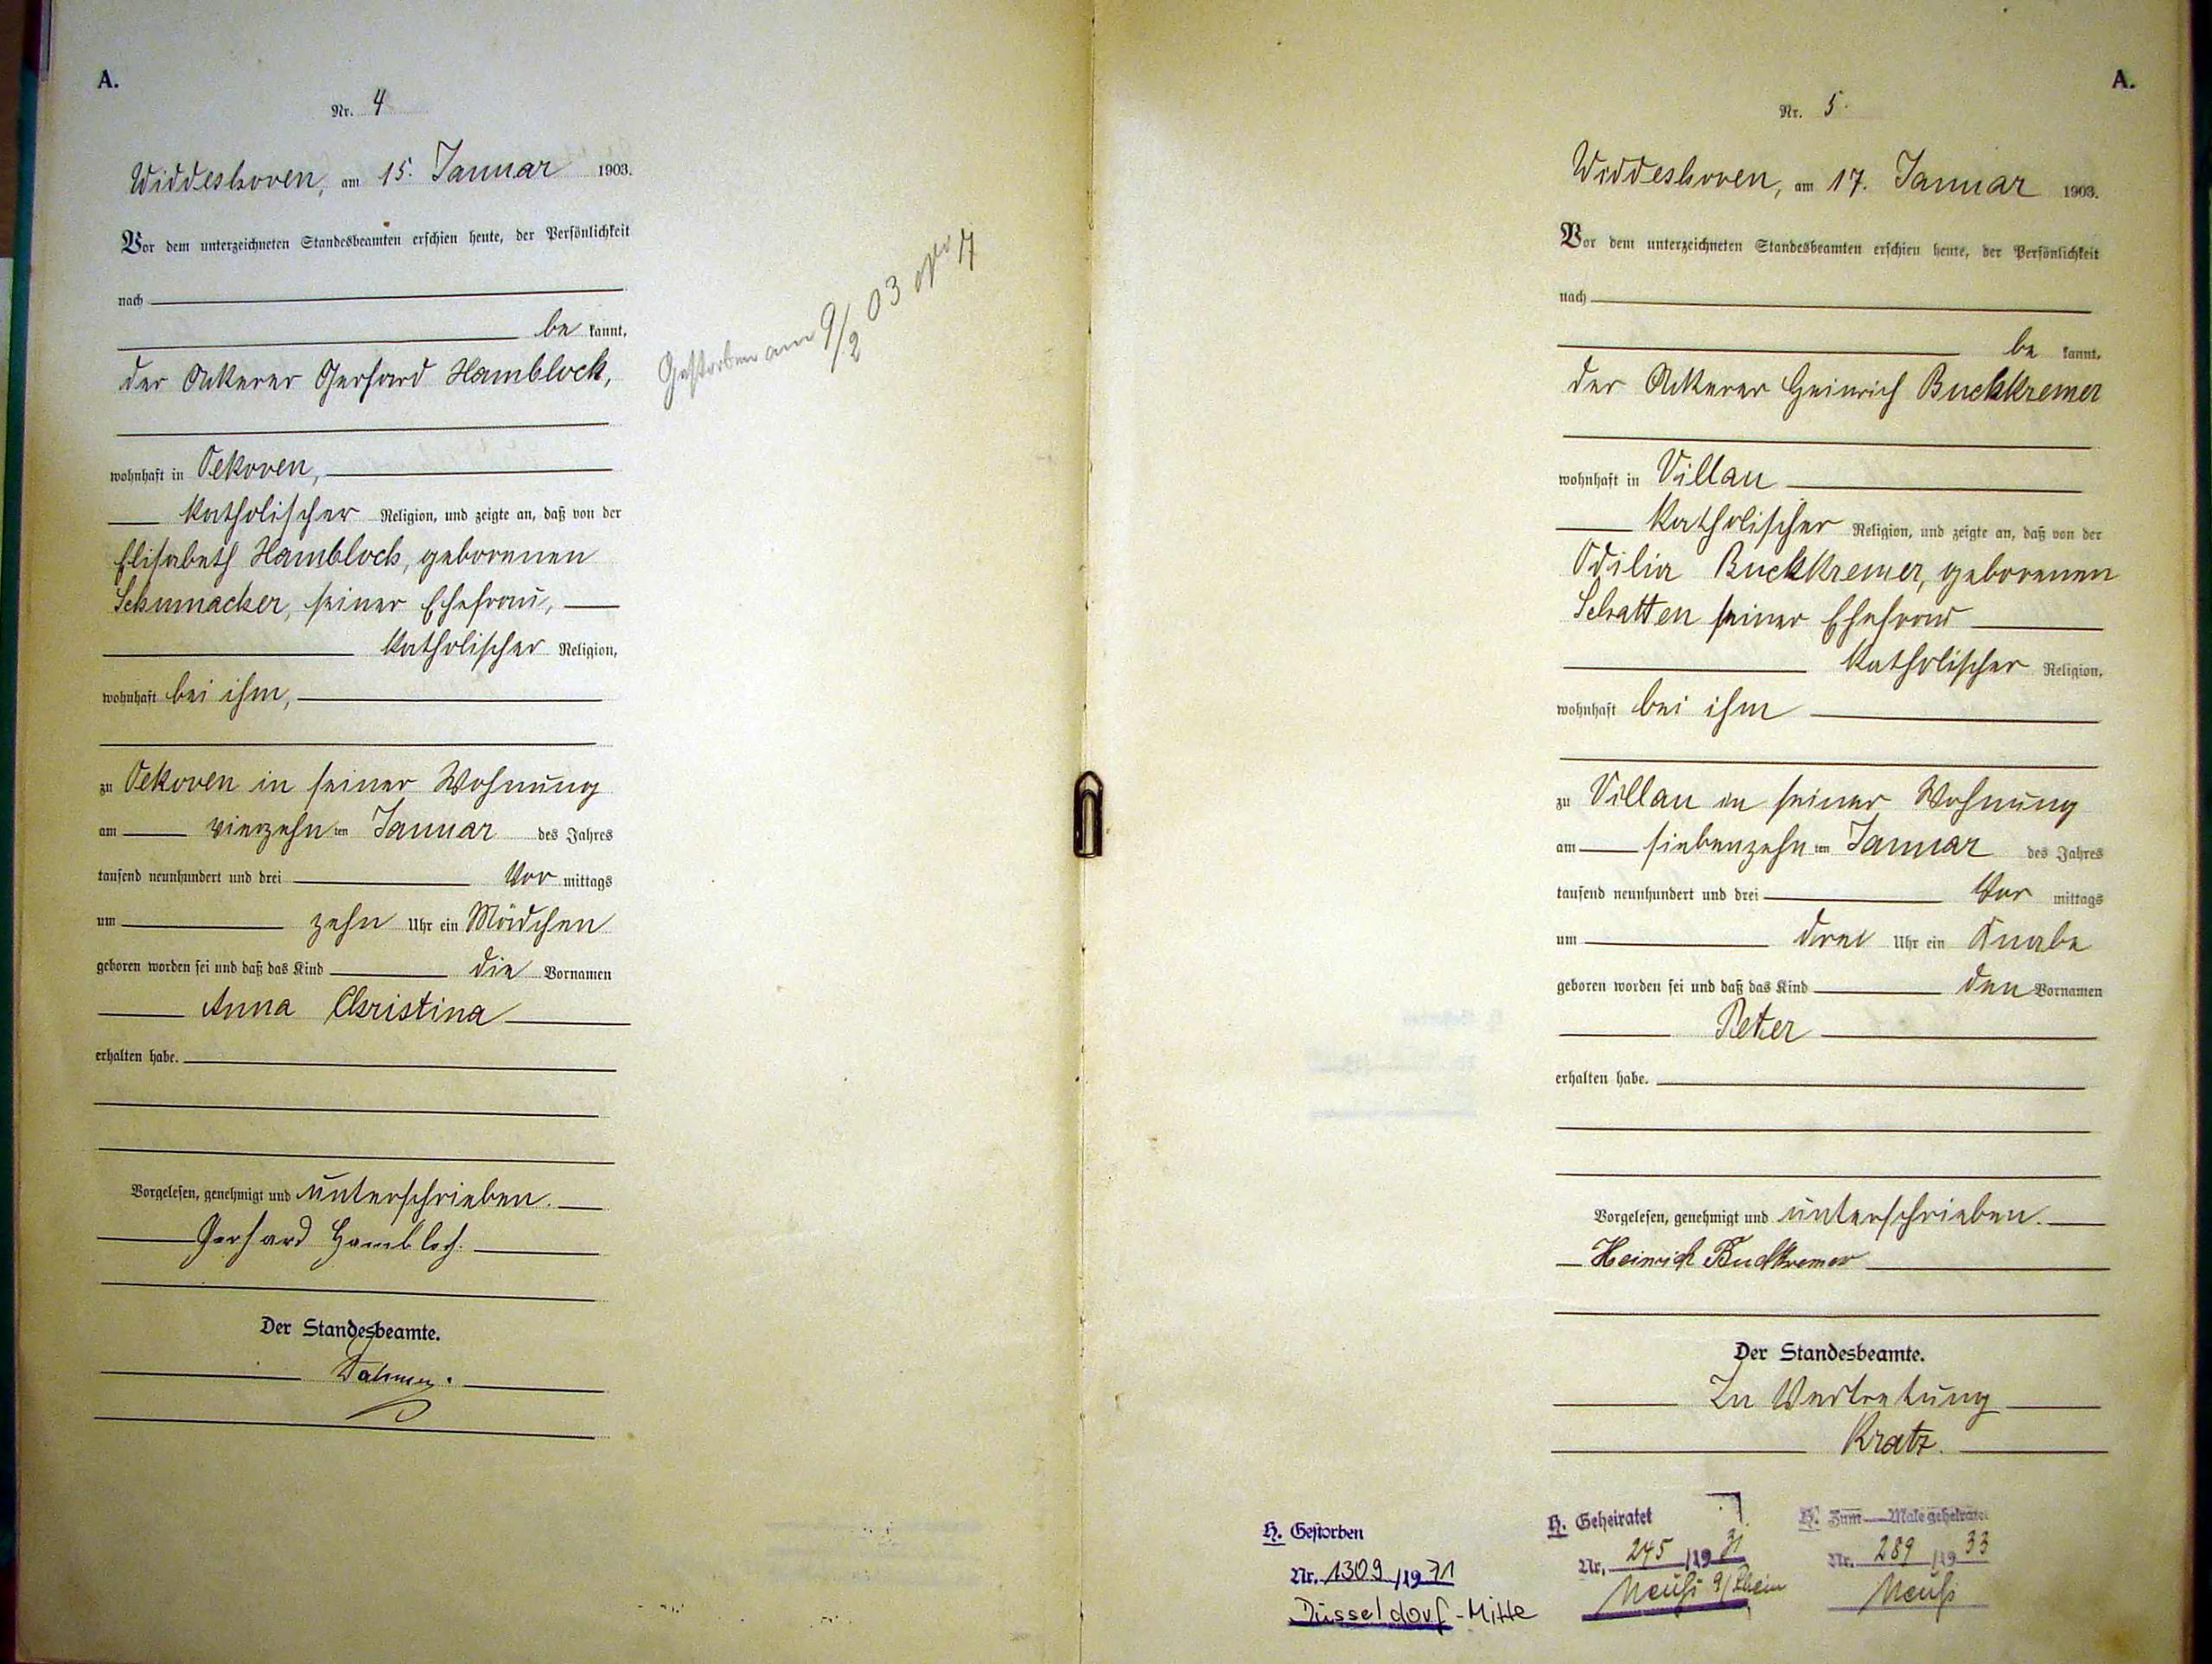 A.
Nr. 4
Widdeshoven, am 15. Januar 1903.
Vor dem unterzeichneten Standesbeamten erschien heute, der Persönlichkeit
nach
be kannt,
der Ackerer Gerhard Hambloch,
wohnhaft in Oekoven,
katholischer Religion, und zeigte an, daß von der
Elisabeth Hambloch, geborenen
Schumacher, seiner Ehefrau,
katholischer Religion,
wohnhaft bei ihm,
zu Oekoven in seiner Wohnung
am vierzehn ten Januar des Jahres
tausend neunhundert und drei Vor mittags
um zehn Uhr ein Mädchen
geboren worden sei und daß das Kind die Vornamen
Anna Christina
erhalten habe.
Vorgelesen, genehmigt und unterschrieben.
Gerhard Hambloch.
Der Standesbeamte.
Gestorben am 9/2 03
A.
Nr. 5
Widdeshoven, am 17. Januar 1903.
Vor dem unterzeichneten Standesbeamten erschien heute, der Persönlichkeit
nach
be kannt,
der Ackerer Heinrich Buckkremer
wohnhaft in Villau
katholischer Religion, und zeigte an, daß von der
Odilia Buckkremer, geborenen
Schatten seiner Ehefrau
katholischer Religion,
wohnhaft bei ihm
zu Villau in seiner Wohnung
am siebenzehn ten Januar des Jahres
tausend neunhundert und drei Vor mittags
um drei Uhr ein Knabe
geboren worden sei und daß das Kind den Vornamen
Peter
erhalten habe.
Vorgelesen, genehmigt und unterschrieben.
Heinrich Buckkremer
Der Standesbeamte.
In Vertretung
Kratz.
H. Gestorben
Nr. 1309 /19 71
Düsseldorf-Mitte
H. Geheiratet
Nr. 245 /19 31
Neuß a/Rhein
H. Zum Male geheiratet
Nr. 289 /19 33
Neuß